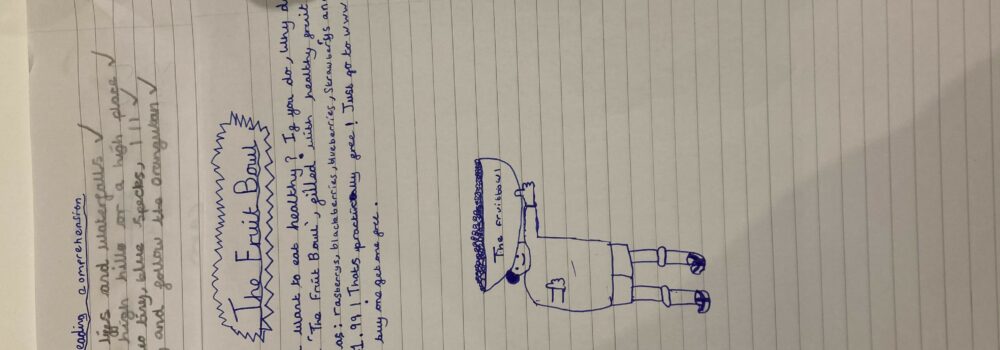 comprehension
and waterfalls ✓
high hills or a high place ✓
tiny, blue specks, !!! ✓
and follow the orangutan ✓
The Fruit Bowl
want to eat healthy? If you do, why d
'The Fruit Bowl', filled with healthy fruit
as: rasberrys, blackberries, blueberries, Strawberrys an
1.99! Thats practically free! Just go to www.
buy one get one free.
The Fruitbowl